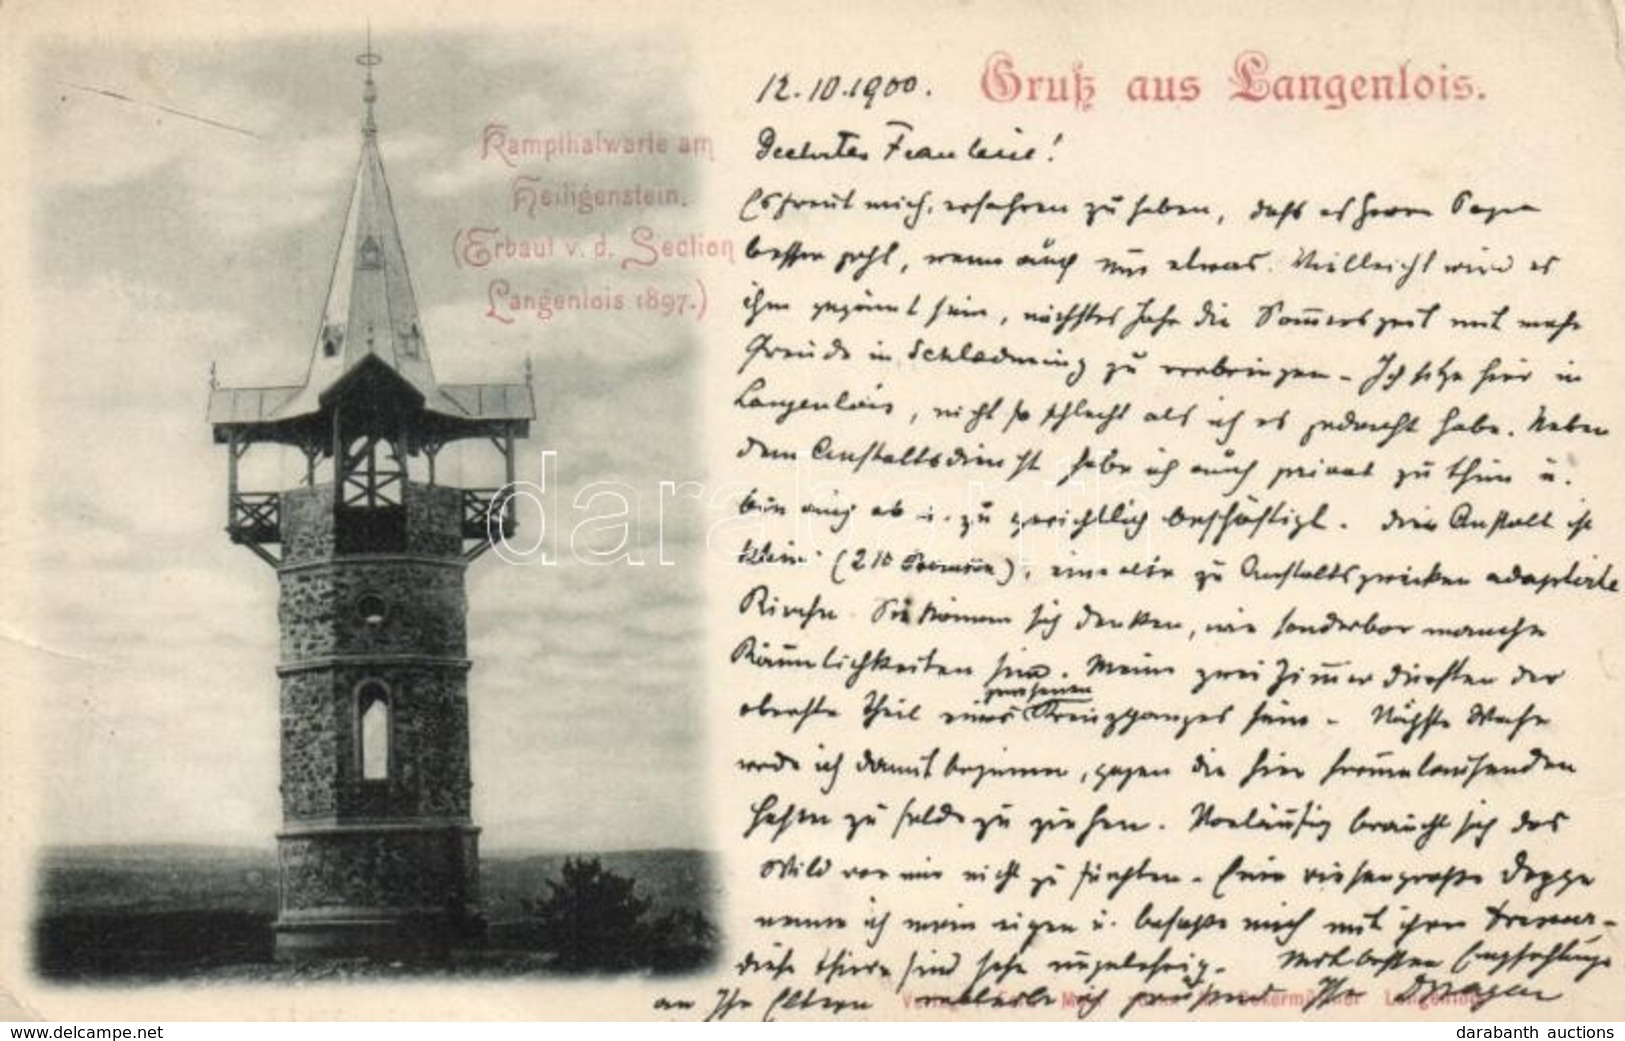 Gruß aus Langenlois.
Kampthalwarte am
Heiligenstein.
(Erbaut v. d. Section
Langenlois 1897.)
12.10.1900.
Geehrtes Fräulein!
Es freut mich, erfahren zu haben, daß es Herrn Papa
besser geht, wenn auch nur etwas. Vielleicht wird es
ihm gegönnt sein, nächstes Jahr die Sommerszeit mit mehr
Freude in Schladming zu verbringen – Ich sitze hier in
Langenlois, nicht so schlecht als ich es gedacht habe. Neben
dem Anstaltsdienst habe ich auch privat zu thun u.
bin auch ab u. zu gerichtlich beschäftigt. Die Anstalt ist
klein (210), eine alte zu Anstaltszwecken adaptirte
Kirche. Sie können sich denken, wie sonderbar manche
Räumlichkeiten sind. Meine zwei Zimmer dürften der
oberste Theil eines gewesenen Kreuzganges sein – Nächste Woche
werde ich damit beginnen, gegen die hier
Hasen zu Felde zu ziehen. Vorläufig braucht sich das
Wild vor mir nicht zu fürchten – Eine riesengroße Dogge
nenne ich mein eigen u. befasse mich mit ihrer Dressur –
diese Thiere sind sehr ungelehrig. Mit besten Empfehlungen
an Ihre Eltern verbleibe ich grüßend Ihr
Verlag Langenlois
darabanth
darabanth auctions
www.delcampe.net